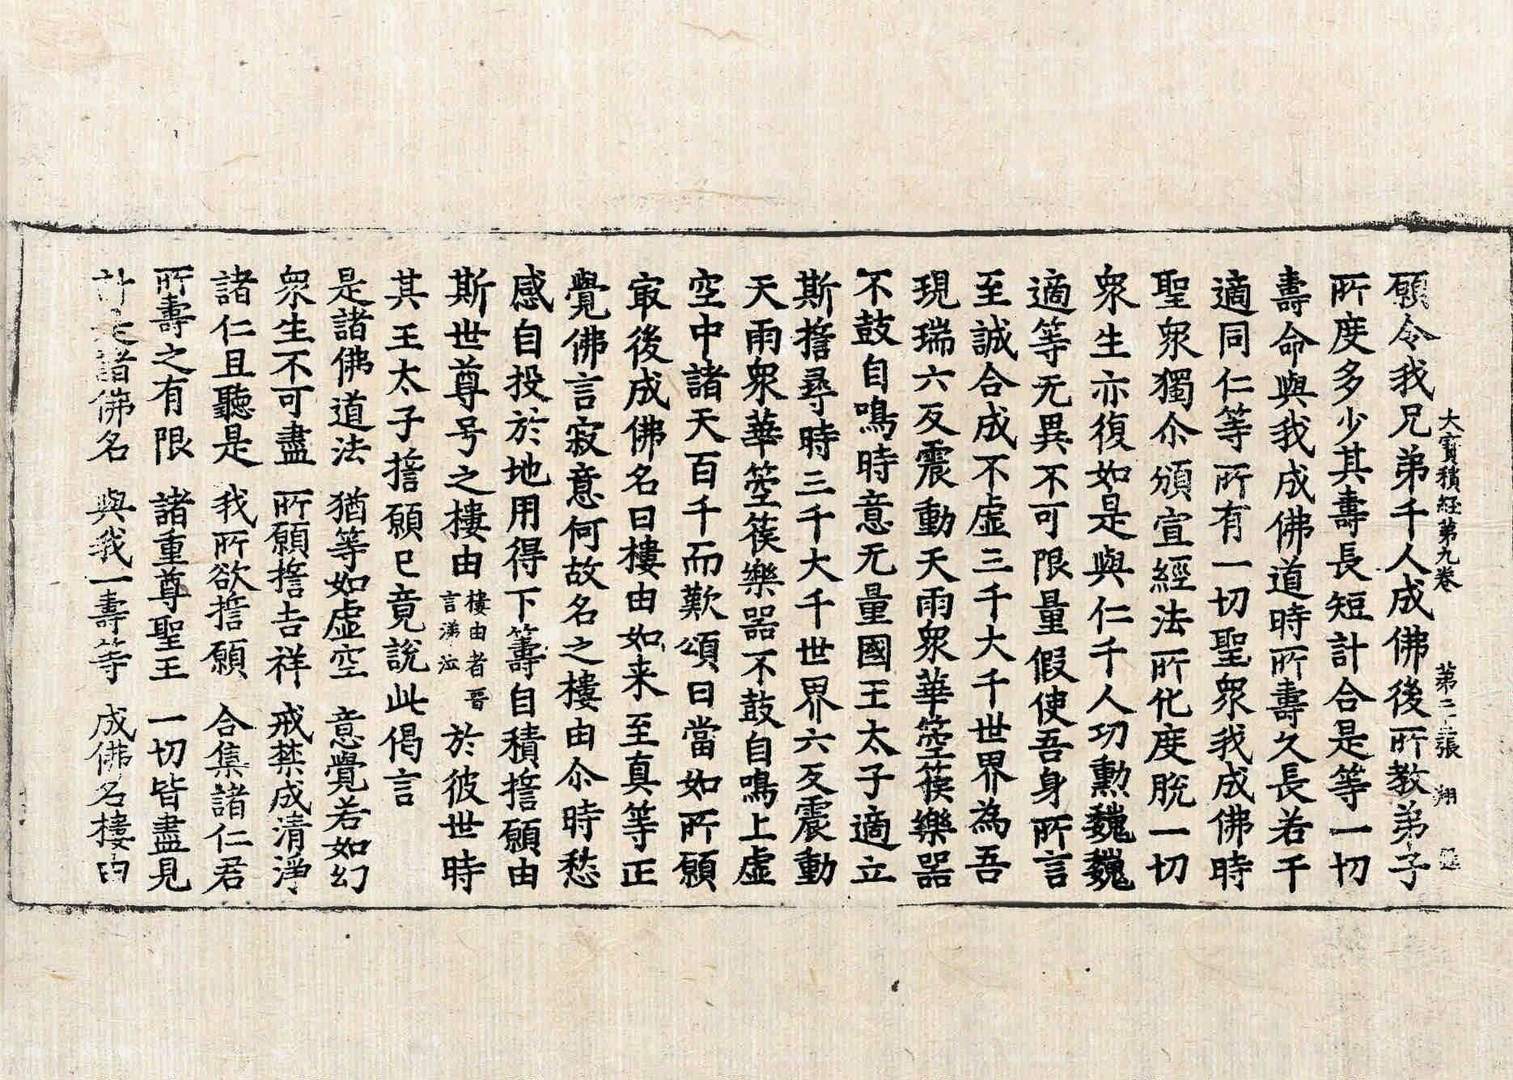 大寶積經第九卷 第二張 翔
願令我兄弟千人成佛後所教弟子
所度多少其壽長短計合是等一切
壽命與我成佛道時所壽久長若干
適同仁等所有一切聖衆我成佛時
聖衆獨尒頒宣經法所化度脫一切
衆生亦復如是與仁千人功勲巍巍
適等无異不可限量假使吾身所言
至誠合成不虛三千大千世界為吾
現瑞六反震動天雨衆華箜篌樂器
不鼓自鳴時意无量國王太子適立
斯擔尋時三千大千世界六反震動
天雨衆華箜篌樂器不鼓自鳴上虛
空中諸天百千而歎頌曰當如所願
㝡後成佛名曰樓由如来至真等正
覺佛言寂意何故名之樓由尒時愁
感自投於地用得下籌自積擔願由
斯世尊号之樓由 樓由者晉言涕泣 於彼世時
其王太子擔願已竟說此偈言
是諸佛道法 猶等如虛空 意覺若如幻
衆生不可盡 所願擔吉祥 戒禁成清淨
諸仁且聽是 我所欲擔願 合集諸仁君
所壽之有限 諸重尊聖王 一切皆盡見
計是諸佛名 與我一壽等 成佛名樓由